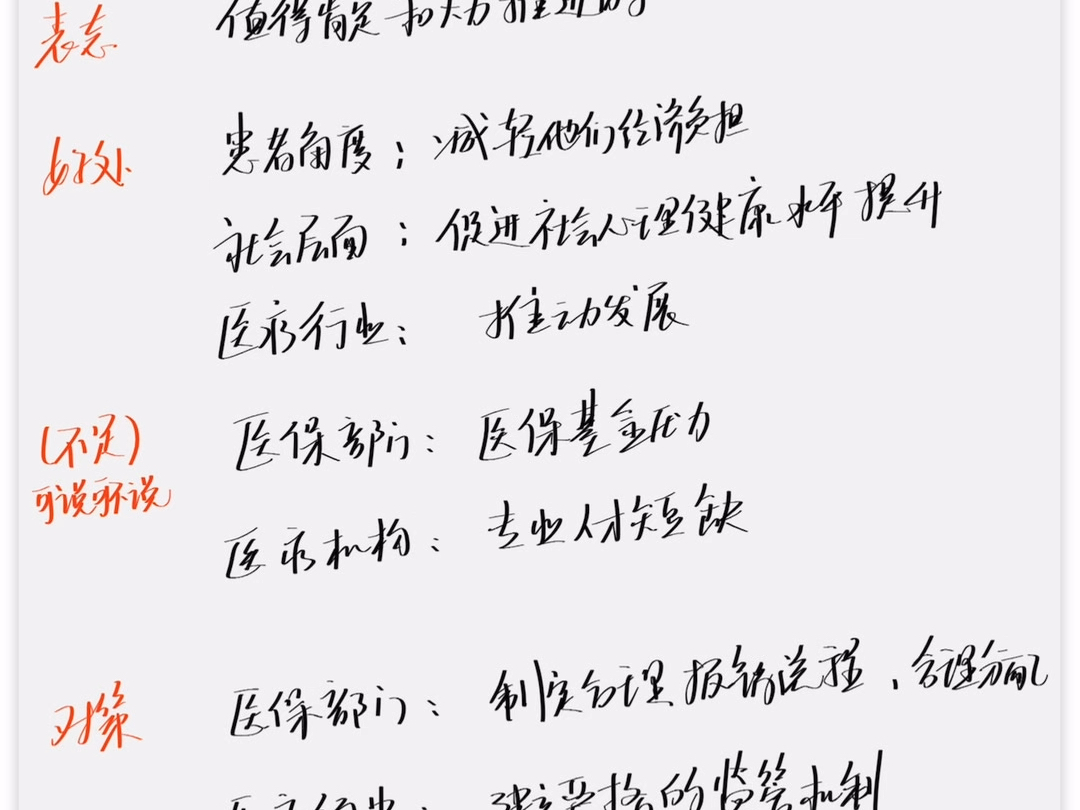 表态 值得肯定和大力推进的
好处 患者角度：减轻他们经济负担
社会层面：促进社会心理健康水平提升
医疗行业：推动发展
(不足) 医保部门：医保基金压力
可说可不说
医疗机构：专业人才短缺
对策 医保部门：制定合理报销流程、合理分配
医疗行业：建立严格的监管机制